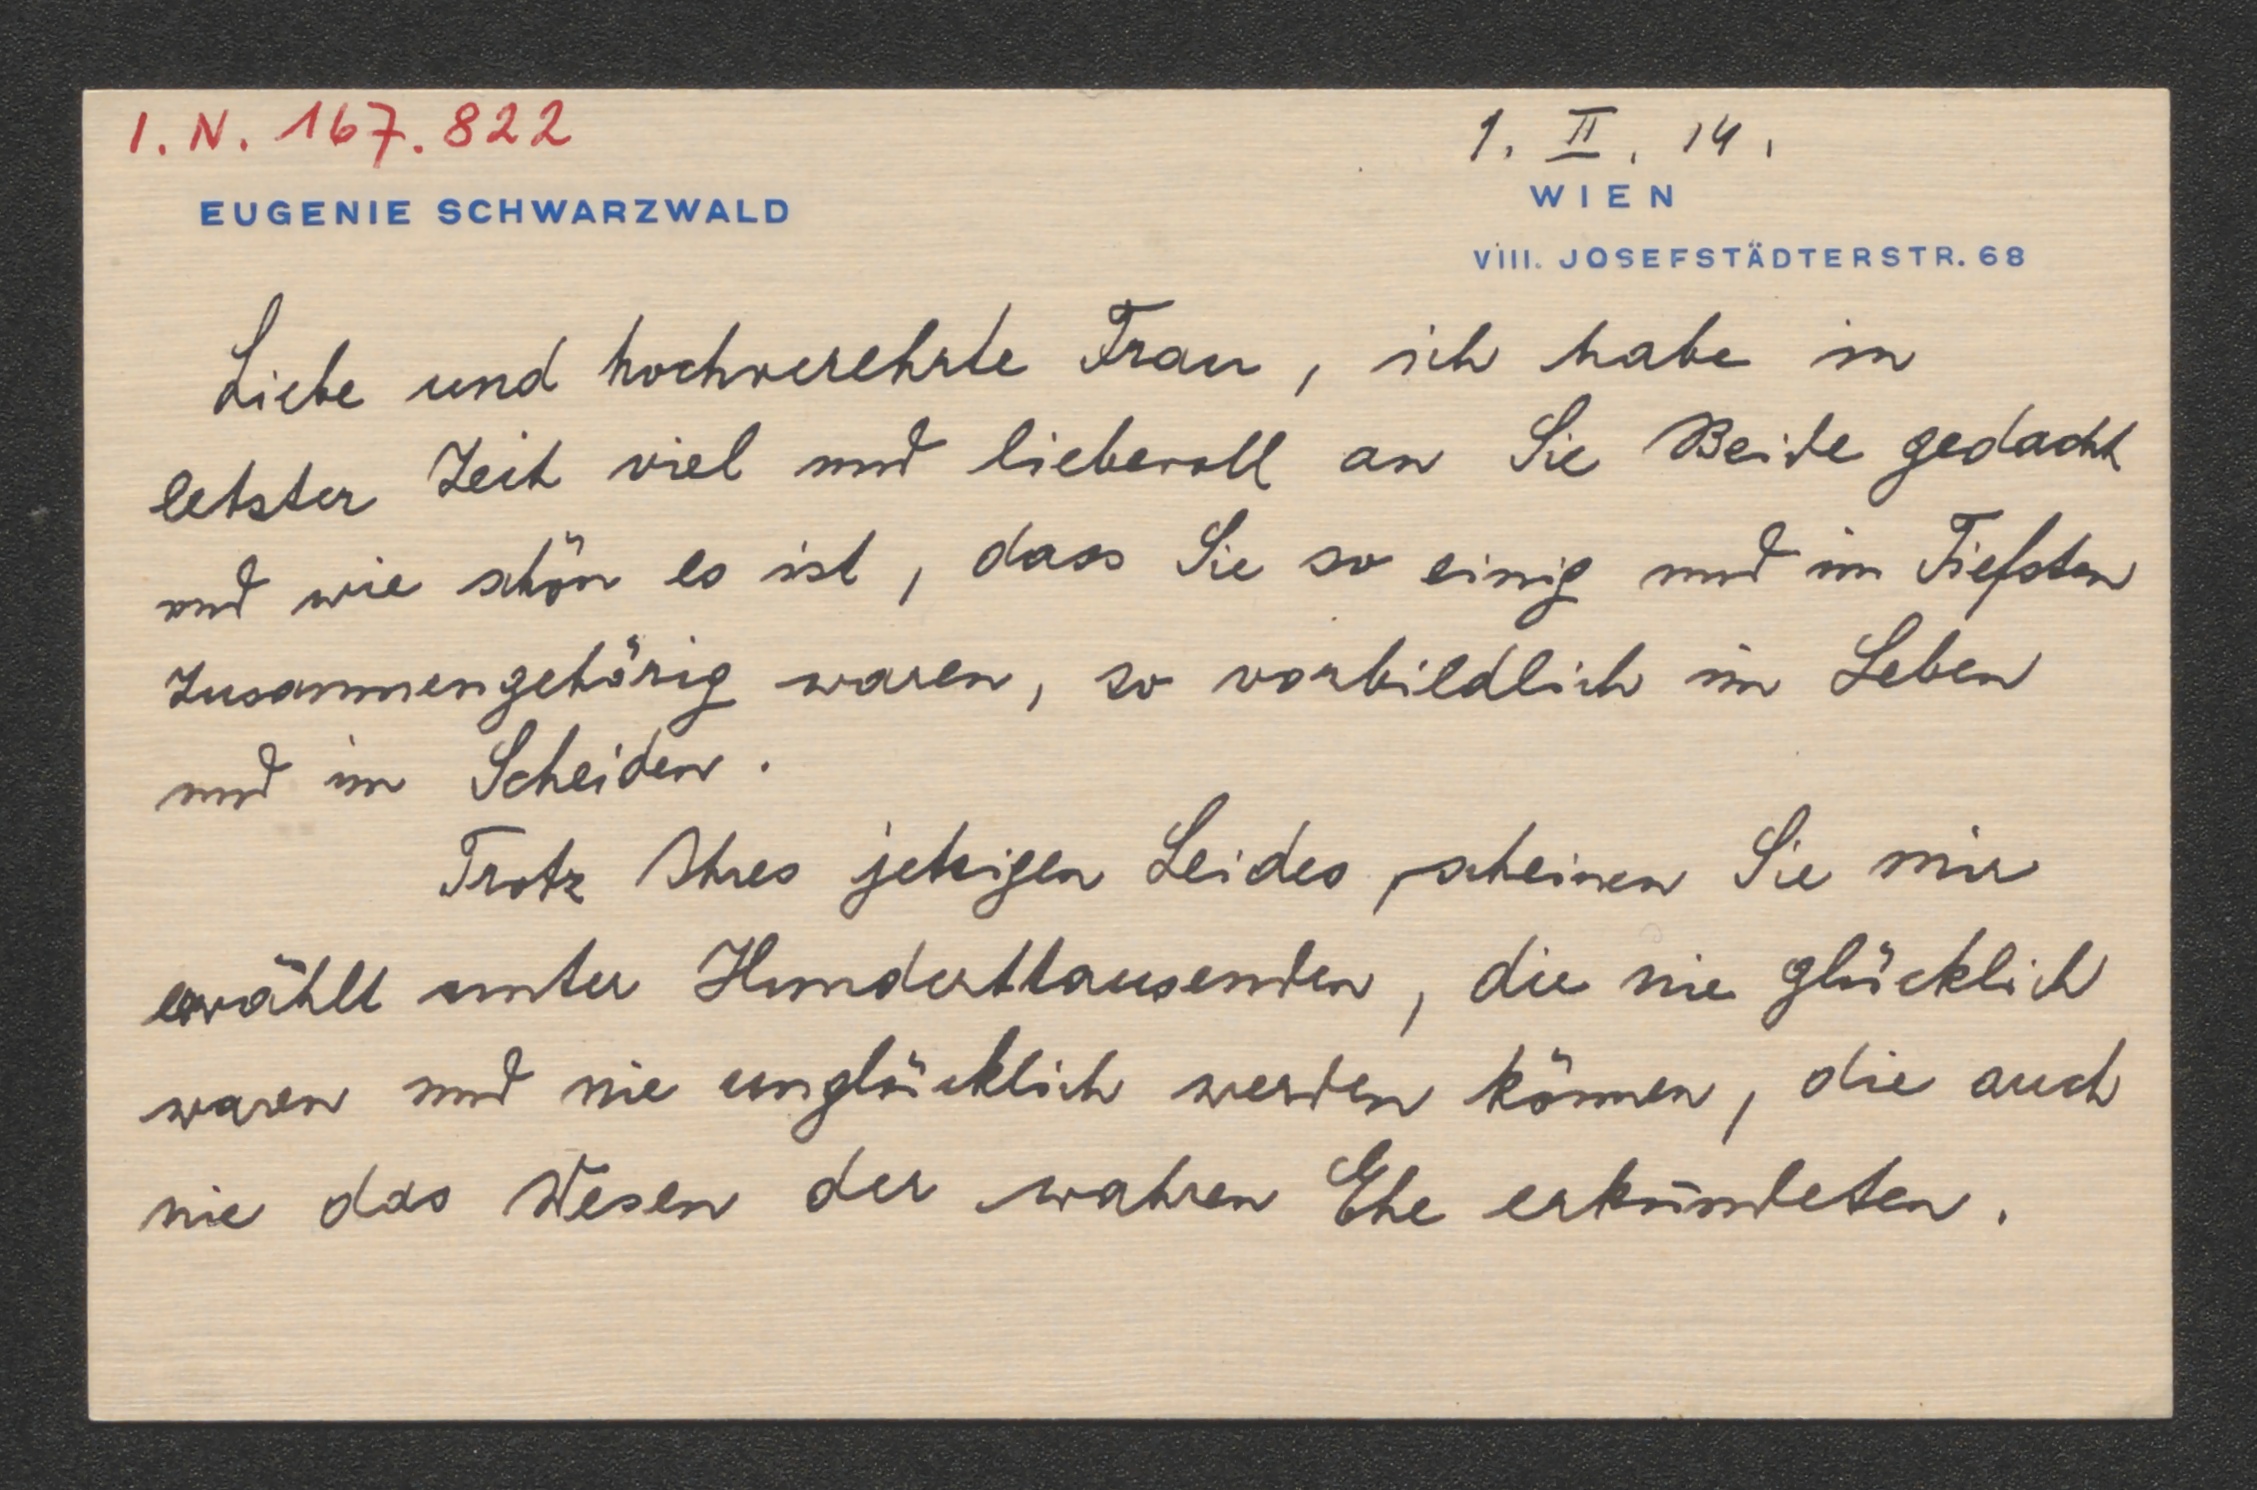 I.N. 167.822
1. II. 14.
EUGENIE SCHWARZWALD
WIEN
VIII. JOSEFSTÄDTERSTR. 68
Liebe und hochverehrte Frau, ich habe in
letzter Zeit viel und liebevoll an Sie Beide gedacht
und wie schön es ist, dass Sie so einig und im Tiefsten
zusammengehörig waren, so vorbildlich im Leben
und im Scheiden.
Trotz Ihres jetzigen Leides, scheinen Sie mir
erwählt unter Hunderttausenden, die nie glücklich
waren und nie unglücklich werden können, die auch
nie das Wesen der wahren Ehe erkündeten.